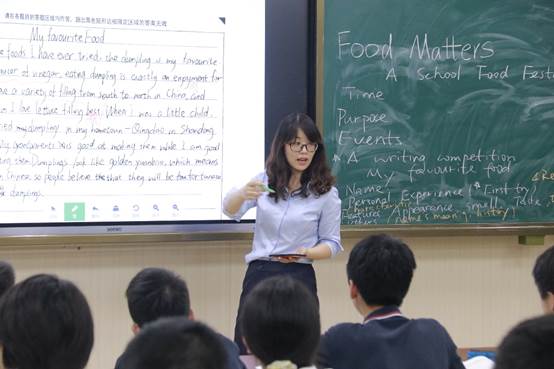 请在各题目的答题区域内作答，超出黑色矩形边框限定区域的答案无效
My favourite Food
foods I have ever tried, the dumpling is my favourite
of vinegar, eating dumpling is exactly an enjoyment for
a variety of filling from south to north in China, and
I love lettuce filling best. When I was a little child,
dumpling in my hometown - Qingdao in Shandong.
My grandparents is good at making them while I am good
them. Dumplings look like golden yuanbao, which means
in Chinese, so people believe that they will be
dumplings.
Food Matters
A School Food Festi
Time
Purpose
Events
A writing competition
My favourite food
Name
Personal Experience (First try,
Features Appearance, smell, taste, t
others name's meaning, history)